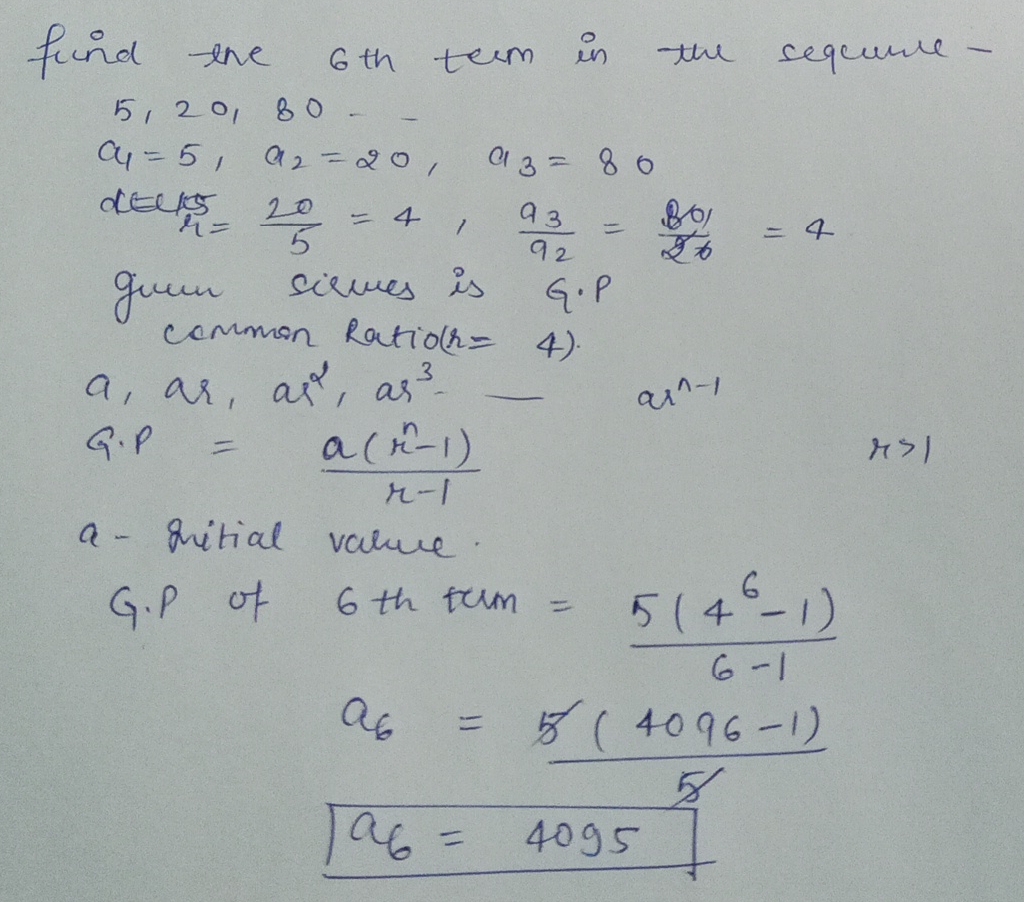 find the 6th term in the sequence -
5, 20, 80 - -
a1 = 5, a2 = 20, a3 = 80
r = 20/5 = 4, a3/a2 = 80/20 = 4
given series is G.P
common Ratio(r = 4).
a, ar, ar², ar³ - — arⁿ⁻¹
G.P = a(rⁿ-1)/r-1 r>1
a - Initial value.
G.P of 6th term = 5(4⁶-1)/6-1
a6 = 5(4096-1)/5
a6 = 4095